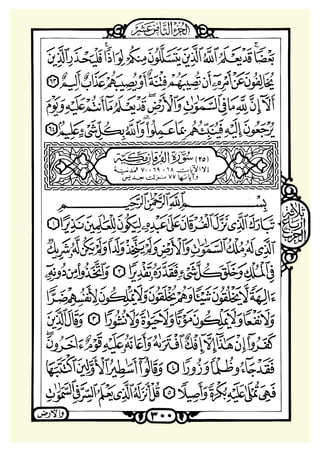 الجزء الثامن عشر
بَعْضًا قَدْ يَعْلَمُ ٱللَّهُ ٱلَّذِينَ يَتَسَلَّلُونَ مِنكُمْ لِوَاذًا فَلْيَحْذَرِ ٱلَّذِينَ
يُخَالِفُونَ عَنْ أَمْرِهِۦٓ أَن تُصِيبَهُمْ فِتْنَةٌ أَوْ يُصِيبَهُمْ عَذَابٌ أَلِيمٌ ٦٣
أَلَآ إِنَّ لِلَّهِ مَا فِى ٱلسَّمَٰوَٰتِ وَٱلْأَرْضِ قَدْ يَعْلَمُ مَآ أَنتُمْ عَلَيْهِ وَيَوْمَ
يُرْجَعُونَ إِلَيْهِ فَيُنَبِّئُهُم بِمَا عَمِلُوا۟ وَٱللَّهُ بِكُلِّ شَىْءٍ عَلِيمٌ ٦٤
(٢٥) سورة الفرقان مكية
إلا الآيات ٦٨ و٦٩ و٧٠ فمدنية
وآياتها ٧٧ نزلت بعد يس
بِسْمِ ٱللَّهِ ٱلرَّحْمَٰنِ ٱلرَّحِيمِ
تَبَارَكَ ٱلَّذِى نَزَّلَ ٱلْفُرْقَانَ عَلَىٰ عَبْدِهِۦ لِيَكُونَ لِلْعَٰلَمِينَ نَذِيرًا ١
ٱلَّذِى لَهُۥ مُلْكُ ٱلسَّمَٰوَٰتِ وَٱلْأَرْضِ وَلَمْ يَتَّخِذْ وَلَدًا وَلَمْ يَكُن لَّهُۥ شَرِيكٌ
فِى ٱلْمُلْكِ وَخَلَقَ كُلَّ شَىْءٍ فَقَدَّرَهُۥ تَقْدِيرًا ٢ وَٱتَّخَذُوا۟ مِن دُونِهِۦٓ
ءَالِهَةً لَّا يَخْلُقُونَ شَيْـًٔا وَهُمْ يُخْلَقُونَ وَلَا يَمْلِكُونَ لِأَنفُسِهِمْ ضَرًّا
وَلَا نَفْعًا وَلَا يَمْلِكُونَ مَوْتًا وَلَا حَيَوٰةً وَلَا نُشُورًا ٣ وَقَالَ ٱلَّذِينَ
كَفَرُوٓا۟ إِنْ هَٰذَآ إِلَّآ إِفْكٌ ٱفْتَرَىٰهُ وَأَعَانَهُۥ عَلَيْهِ قَوْمٌ ءَاخَرُونَ
فَقَدْ جَآءُو ظُلْمًا وَزُورًا ٤ وَقَالُوٓا۟ أَسَٰطِيرُ ٱلْأَوَّلِينَ ٱكْتَتَبَهَا
فَهِىَ تُمْلَىٰ عَلَيْهِ بُكْرَةً وَأَصِيلًا ٥ قُلْ أَنزَلَهُ ٱلَّذِى يَعْلَمُ ٱلسِّرَّ فِى ٱلسَّمَٰوَٰتِ
٣٠٠
والأرض